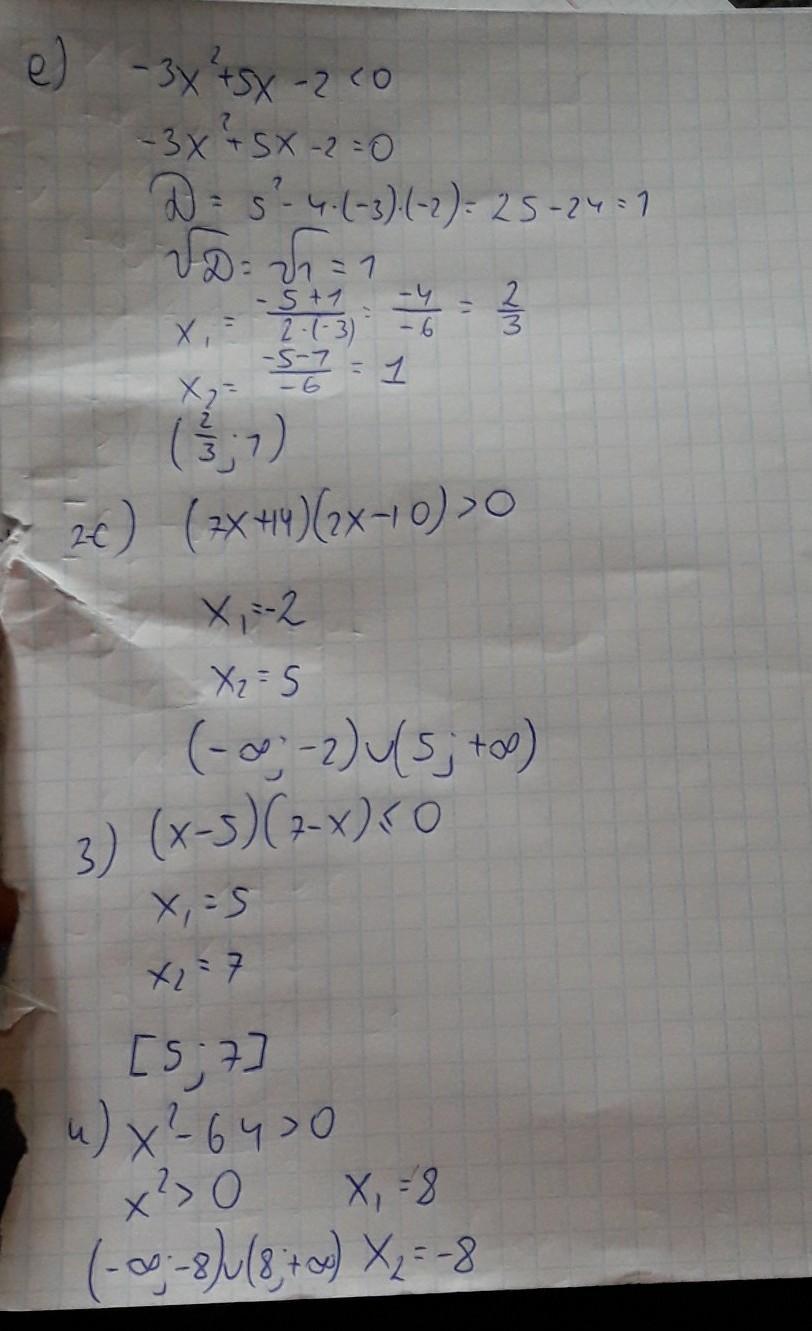 е) -3x²+5x-2<0
-3x²+5x-2=0
D = 5²-4·(-3)·(-2)= 25-24=1
√D=√1=1
x₁ = (-5+1)/(2·(-3)) = (-4)/(-6) = 2/3
x₂ = (-5-1)/(-6) = 1
(2/3; 1)
ж) (7x+14)(2x-10)>0
x₁=-2
x₂=5
(-∞; -2)∪(5; +∞)
з) (x-5)(7-x)≤0
x₁=5
x₂=7
[5; 7]
и) x²-64>0
x²>0 x₁=8
(-∞;-8)∪(8;+∞) x₂=-8